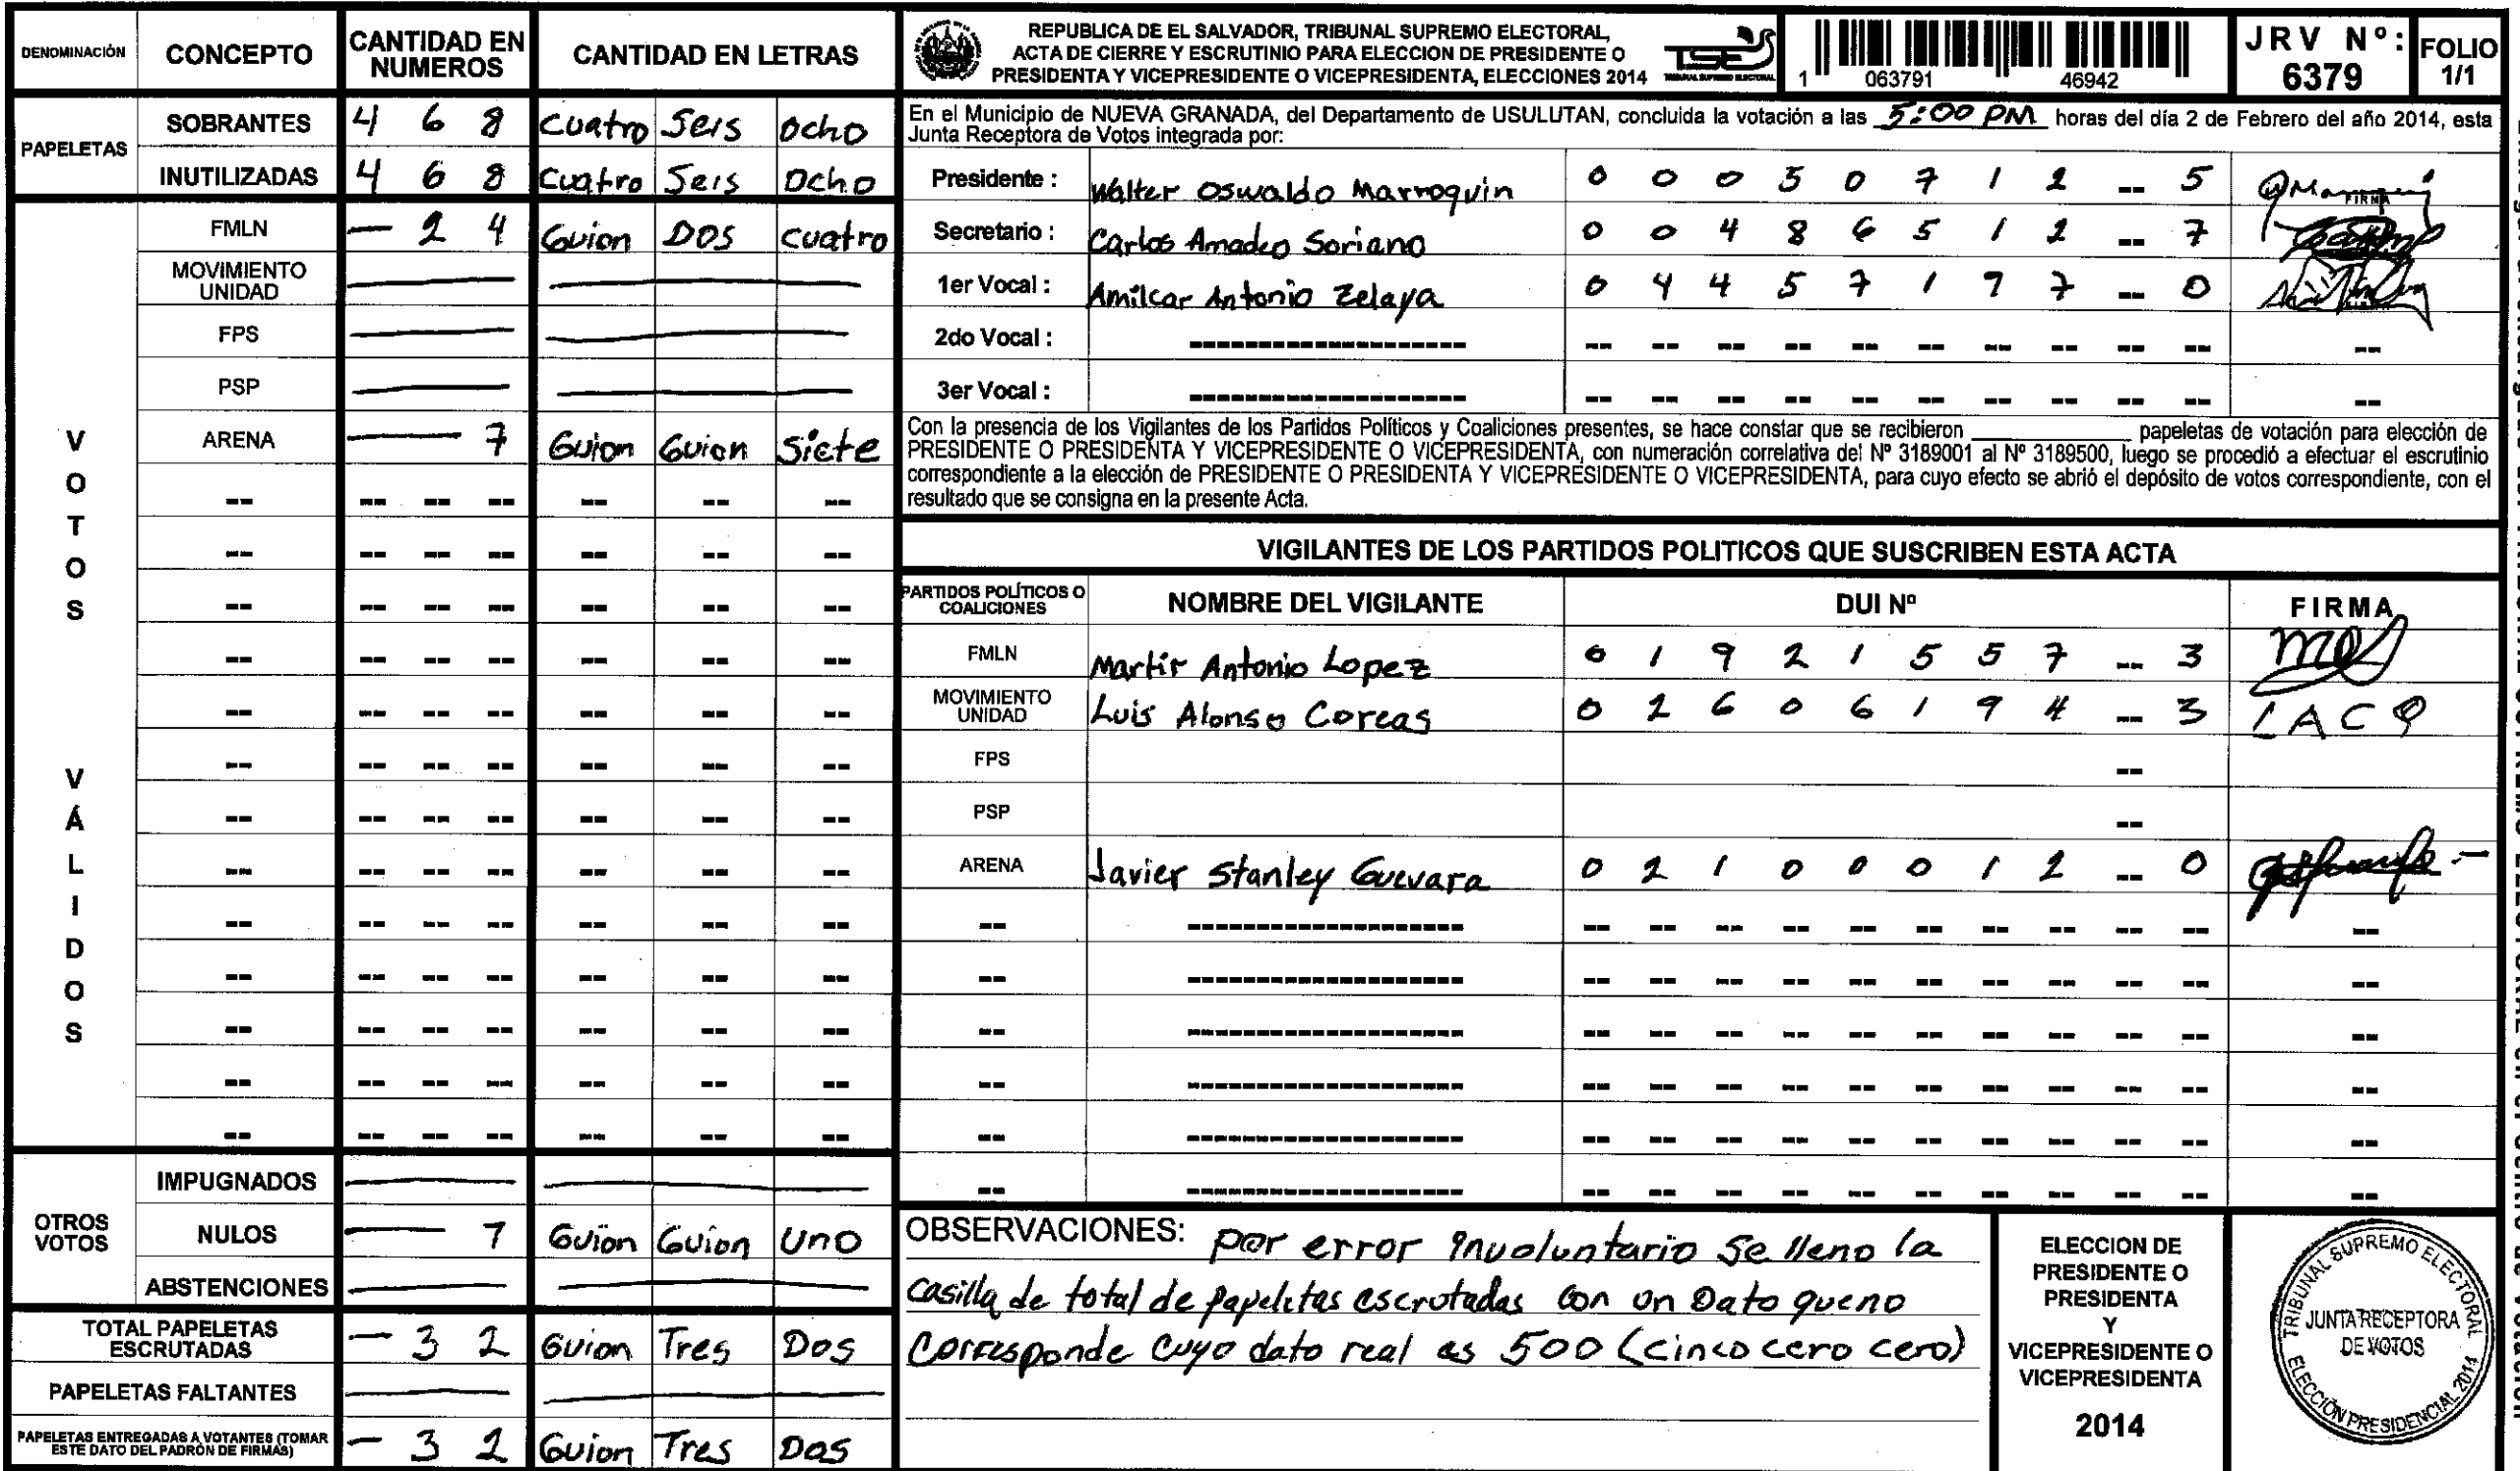 DENOMINACIÓN CONCEPTO CANTIDAD EN NUMEROS CANTIDAD EN LETRAS
PAPELETAS
SOBRANTES 4 6 8 Cuatro Seis Ocho
INUTILIZADAS 4 6 8 Cuatro Seis Ocho
VOTOS VÁLIDOS
FMLN — 2 4 Guion Dos Cuatro
MOVIMIENTO UNIDAD
FPS
PSP
ARENA — 7 Guion Guion Siete
OTROS VOTOS
IMPUGNADOS
NULOS — 1 Guion Guion Uno
ABSTENCIONES
TOTAL PAPELETAS ESCRUTADAS — 3 2 Guion Tres Dos
PAPELETAS FALTANTES
PAPELETAS ENTREGADAS A VOTANTES (TOMAR ESTE DATO DEL PADRÓN DE FIRMAS) — 3 2 Guion Tres Dos
REPUBLICA DE EL SALVADOR, TRIBUNAL SUPREMO ELECTORAL,
ACTA DE CIERRE Y ESCRUTINIO PARA ELECCION DE PRESIDENTE O
PRESIDENTA Y VICEPRESIDENTE O VICEPRESIDENTA, ELECCIONES 2014
TSE
TRIBUNAL SUPREMO ELECTORAL
1 063791 46942
JRV Nº: 6379
FOLIO 1/1
En el Municipio de NUEVA GRANADA, del Departamento de USULUTAN, concluida la votación a las 5:00 PM horas del día 2 de Febrero del año 2014, esta
Junta Receptora de Votos integrada por:
Presidente : Walter Oswaldo Marroquin 0 0 0 5 0 7 1 2 -- 5
FIRMA
Secretario : Carlos Amadeo Soriano 0 0 4 8 6 5 1 2 -- 7
1er Vocal : Amilcar Antonio Zelaya 0 4 4 5 7 1 9 7 -- 0
2do Vocal :
3er Vocal :
Con la presencia de los Vigilantes de los Partidos Políticos y Coaliciones presentes, se hace constar que se recibieron ____ papeletas de votación para elección de
PRESIDENTE O PRESIDENTA Y VICEPRESIDENTE O VICEPRESIDENTA, con numeración correlativa del Nº 3189001 al Nº 3189500, luego se procedió a efectuar el escrutinio
correspondiente a la elección de PRESIDENTE O PRESIDENTA Y VICEPRESIDENTE O VICEPRESIDENTA, para cuyo efecto se abrió el depósito de votos correspondiente, con el
resultado que se consigna en la presente Acta.
VIGILANTES DE LOS PARTIDOS POLITICOS QUE SUSCRIBEN ESTA ACTA
PARTIDOS POLÍTICOS O COALICIONES NOMBRE DEL VIGILANTE DUI Nº FIRMA
FMLN Martir Antonio Lopez 0 1 9 2 1 5 5 7 -- 3
MOVIMIENTO UNIDAD Luis Alonso Coreas 0 2 6 0 6 1 9 4 -- 3 LACQ
FPS --
PSP --
ARENA Javier Stanley Guevara 0 2 1 0 0 0 1 2 -- 0
OBSERVACIONES: por error involuntario se lleno la
casilla de total de papeletas escrutadas con un Dato que no
corresponde cuyo dato real es 500 (cinco cero cero)
ELECCION DE
PRESIDENTE O
PRESIDENTA
Y
VICEPRESIDENTE O
VICEPRESIDENTA
2014
TRIBUNAL SUPREMO ELECTORAL
JUNTA RECEPTORA
DE VOTOS
ELECCIÓN PRESIDENCIAL 2014